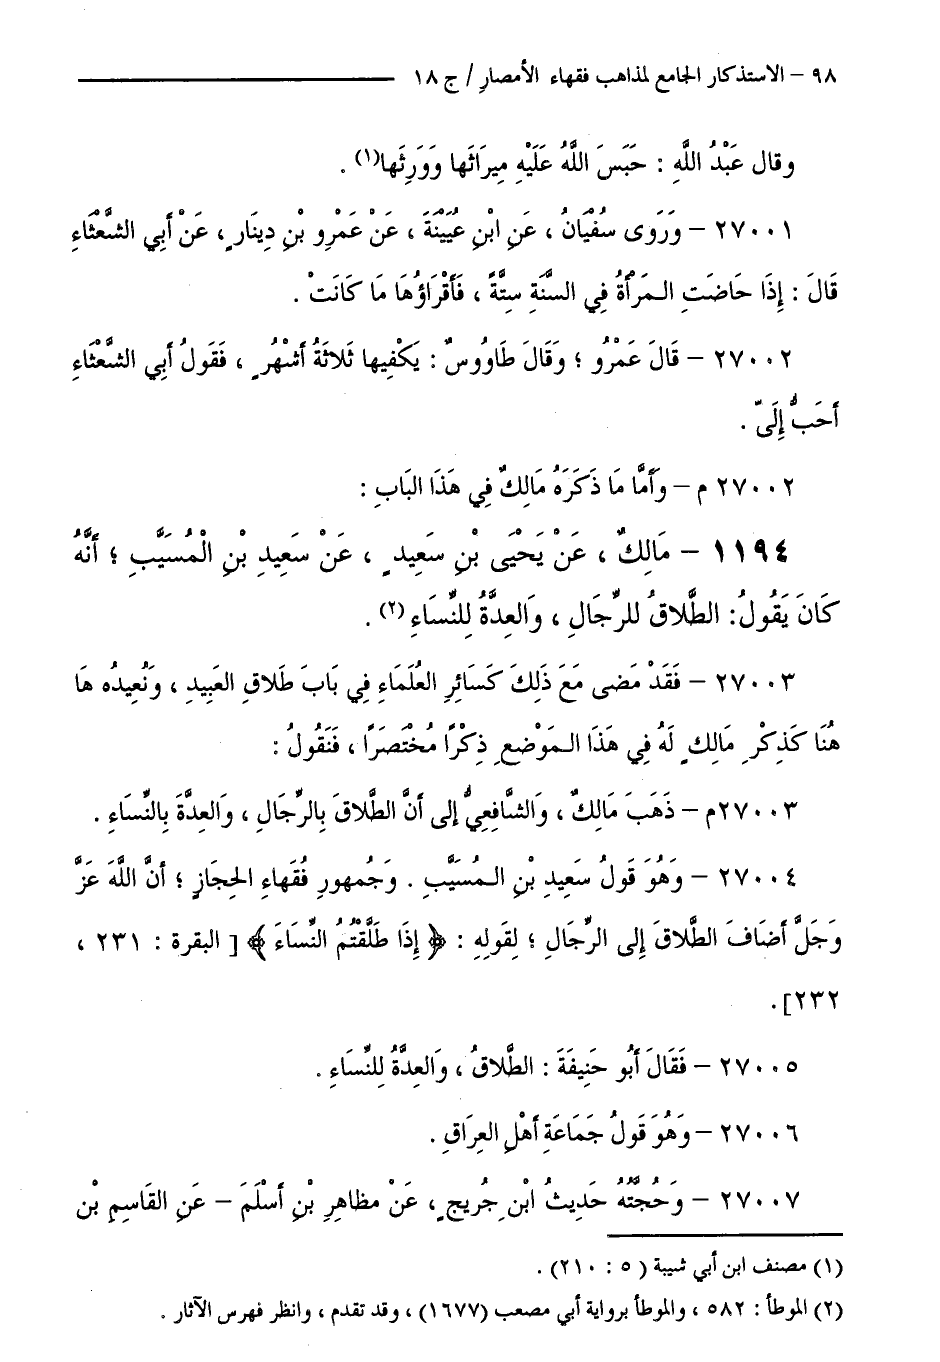 ٩٨ – الاستذكار الجامع لمذاهب فقهاء الأمصارِ / ج ١٨
وقال عَبْدُ اللَّهِ : حَبَسَ اللَّهُ عَلَيْهِ مِيرَاثَها وَوَرِثَها(١) .
٢٧٠٠١ – وَرَوى سُفْيَانُ ، عَنِ ابْنِ عُيَيْنَةَ ، عَنْ عَمْرِو بْنِ دِينَارٍ ، عَنْ أَبِي الشَّعْثَاءِ
قَالَ : إِذَا حَاضَتِ المَرْأةُ فِي السَّنَةِ سِتَّةً ، فَأَقْرَاؤُهَا مَا كَانَتْ .
٢٧٠٠٢ – قَالَ عَمْرُو ؛ وَقَالَ طَاوُوسٌ : يَكْفِيها ثَلاثَةُ أشْهُرٍ ، فَقَولُ أبِي الشَّعْثَاءِ
أحَبُّ إِلَيّ .
٢٧٠٠٢ م – وَأَمَّا مَا ذَكَرَهُ مَالِكٌ فِي هَذَا البَابِ :
١١٩٤ – مَالِكٌ ، عَنْ يَحْيَى بْنِ سَعِيدٍ ، عَنْ سَعِيدِ بْنِ الْمُسَيَّبِ ؛ أَنَّهُ
كَانَ يَقُولُ: الطَّلاقُ للرِّجَالِ ، وَالعِدَّةُ لِلنِّسَاءِ (٢) .
٢٧٠٠٣ – فَقَدْ مَضى مَعَ ذَلِكَ كَسَائِرِ العُلَمَاءِ فِي بَابَ طَلاقِ العَبِيدِ ، وَنُعِيدُه هَا
هُنَا كَذِكْرِ مَالِكٍ لَهُ فِي هَذَا المَوْضِعِ ذِكْرًا مُخْتَصَرًا ، فَنَقُولُ :
٢٧٠٠٣م – ذَهَبَ مَالِكٌ ، وَالشَّافِعِيُّ إلى أنَّ الطَّلاقَ بِالرِّجَالِ ، وَالعِدَّةَ بِالنِّسَاءِ .
٢٧٠٠٤ – وَهُوَ قَولُ سَعِيدِ بْنِ المُسَيَّبِ . وَجُمهورِ فُقَهاءِ الحِجَازِ ؛ أنَّ اللَّهَ عَزَّ
وَجَلَّ أضَافَ الطَّلاقَ إِلى الرِّجَالِ ؛ لِقَولِهِ : ﴿ إِذَا طَلَّقْتُمُ النِّسَاءَ ﴾ [ البقرة : ٢٣١ ،
٢٣٢].
٢٧٠٠٥ – فَقَالَ أَبُو حَنِيفَةَ : الطَّلاقُ ، وَالعِدَّةُ لِلنِّسَاءِ .
٢٧٠٠٦ – وَهُوَ قَولُ جَمَاعَةِ أَهْلِ العِرَاقِ .
٢٧٠٠٧ – وَحُجَّتُهُ حَدِيثُ ابْنِ جُرِيجٍ ، عَنْ مظاهِرِ بْنِ أَسْلَمَ – عَنِ القَاسِمِ بْن
(١) مصنف ابن أبي شيبة ( ٥ : ٢١٠ ) .
(٢) الموطأ : ٥٨٢ ، والموطأ برواية أبي مصعب (١٦٧٧) ، وقد تقدم ، وانظر فهرس الآثار .